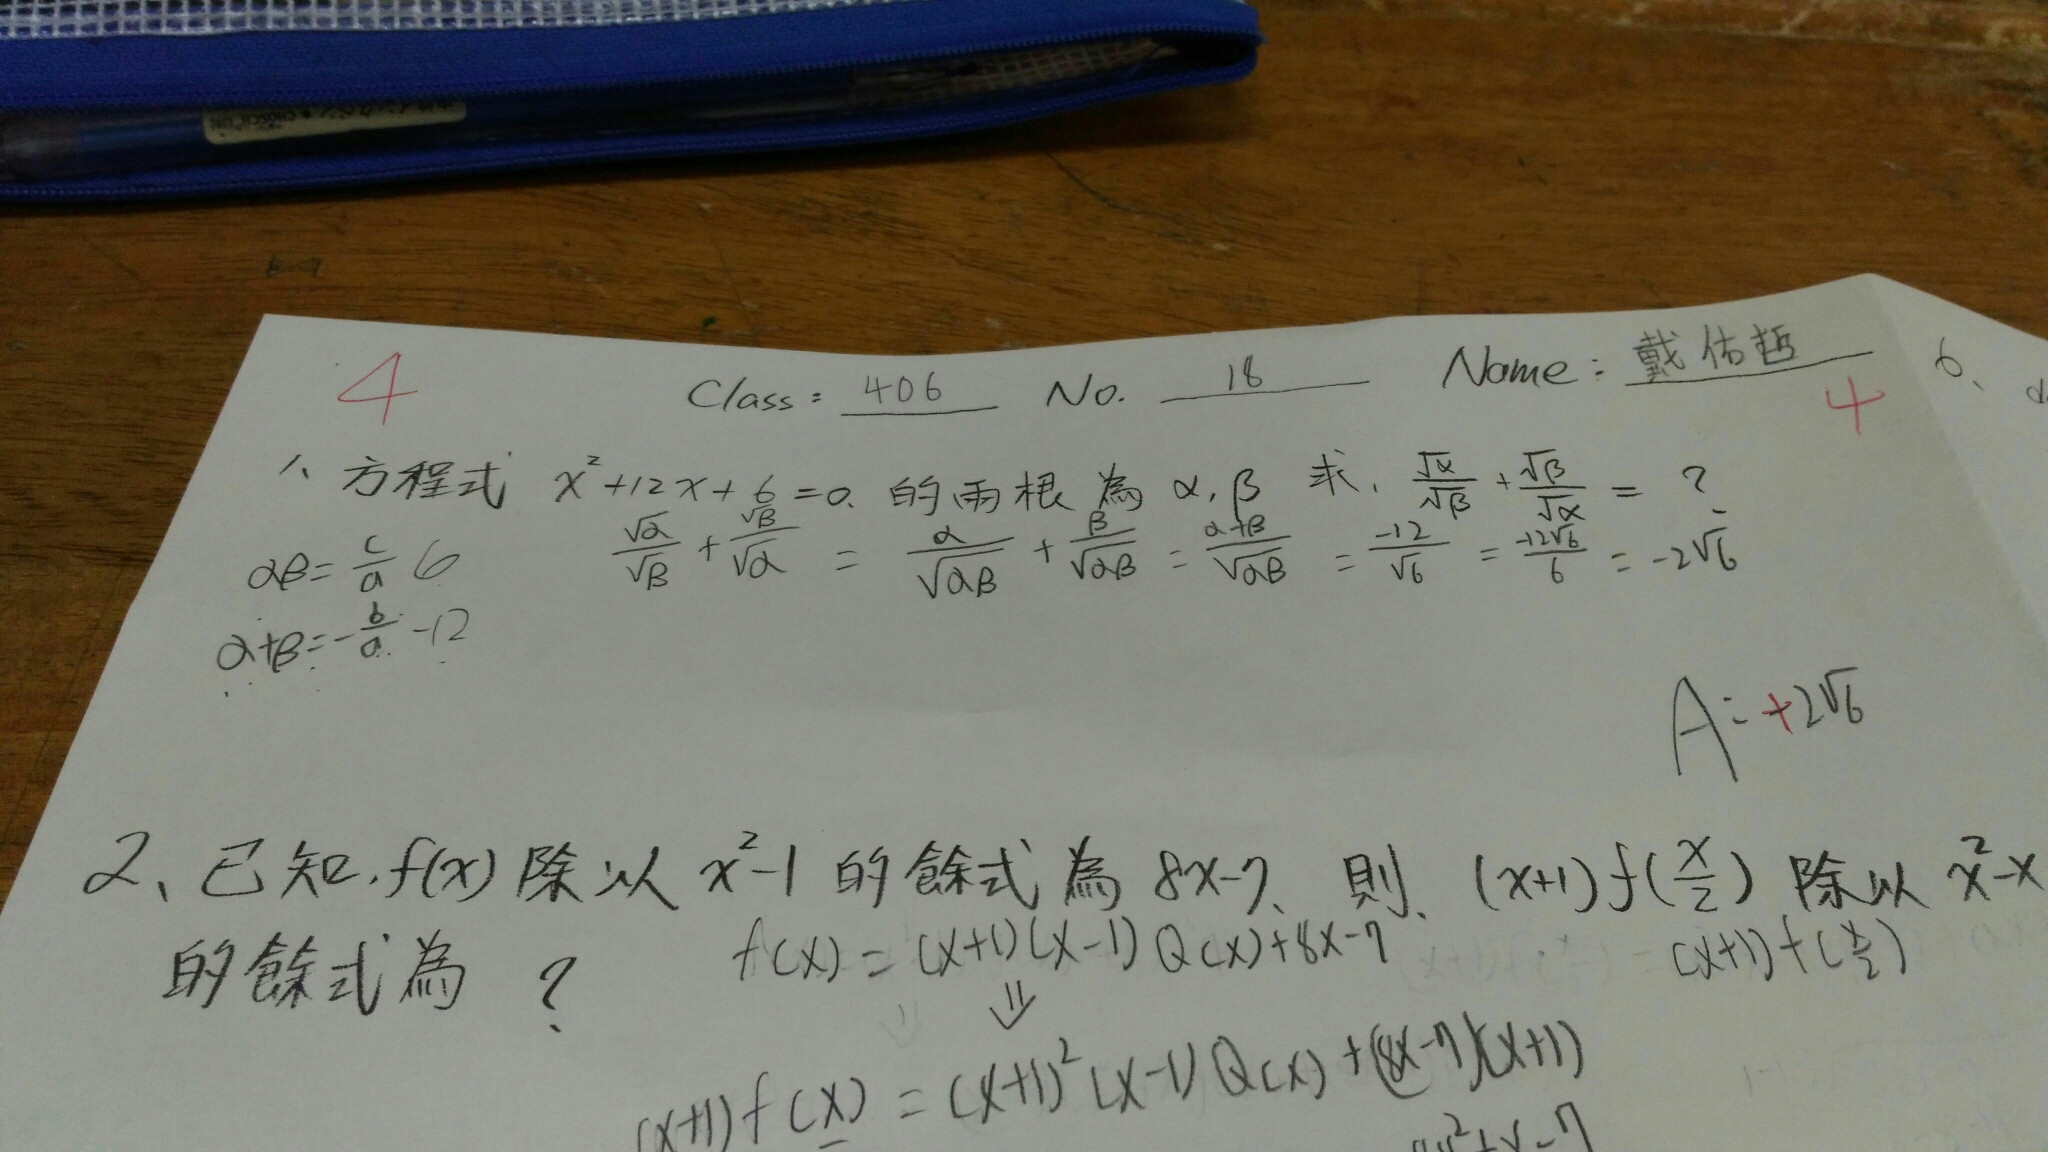 4
Class: 406 No. 18 Name: 戴佑哲
4
6、
1、方程式 x²+12x+6=0 的兩根為 α, β 求, √α/√β + √β/√α = ?
αβ = c/a 6
√α/√β + √β/√α = α/√αβ + β/√αβ = α+β/√αβ = -12/√6 = -12√6/6 = -2√6
α+β = -b/a -12
A: +2√6
2、已知, f(x) 除以 x²-1 的餘式為 8x-7、則、(x+1) f(x/2) 除以 x²-x
的餘式為 ?
f(x) = (x+1)(x-1) Q(x)+8x-7
(x+1)f(x/2)
⇓
(x+1) f(x) = (x+1)² (x-1) Q(x) + (8x-7)(x+1)